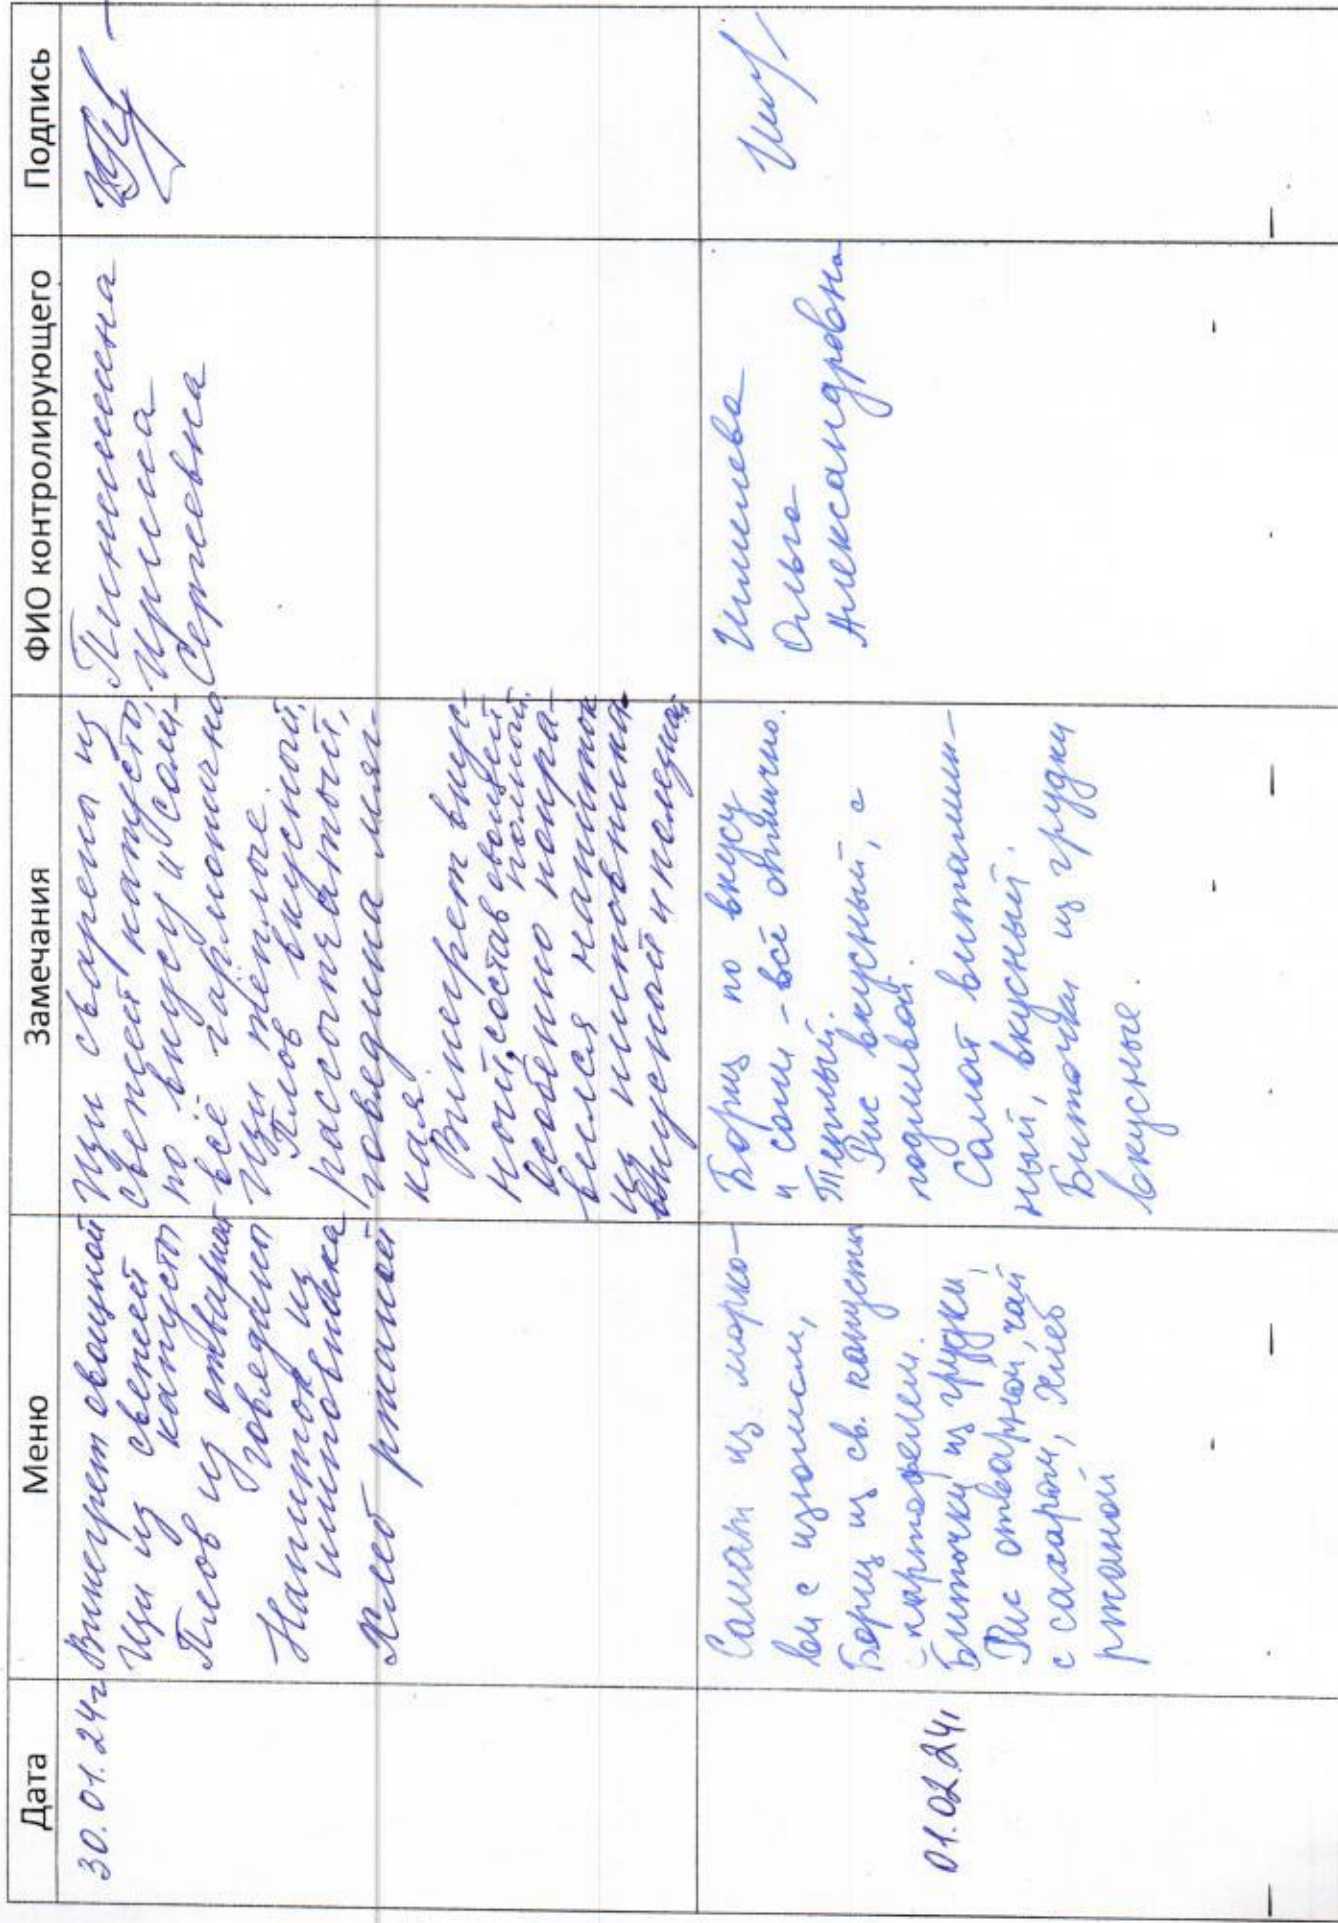 Дата
Меню
Замечания
ФИО контролирующего
Подпись
30.01.24г
Винегрет овощной
Щи из свежей
капусты
Плов из отварной
говядины
Напиток из
шиповника
Хлеб ржаной
Щи сварены из
свежей капусты,
по вкусу и соли-
всё гармонично
Щи теплые.
Плов вкусный,
рассыпчатый,
говядина мяг-
кая.
Винегрет вкус-
ный, состав овощей
полный.
Особенно понра-
вился напиток
из шиповника-
вкусной и полезной
Ирина
Сергеевна
01.02.24г
Салат из морко-
ви с изюмом,
Борщ из св. капусты
с картофелем.
Биточки из грудки,
Рис отварной, чай
с сахаром, хлеб
ржаной
Борщ по вкусу
и соли - всё отлично.
Тёплый.
Рис вкусный, с
подливой.
Салат витамин-
ный, вкусный.
Биточки из грудки
вкусные.
Ольга
Александровна